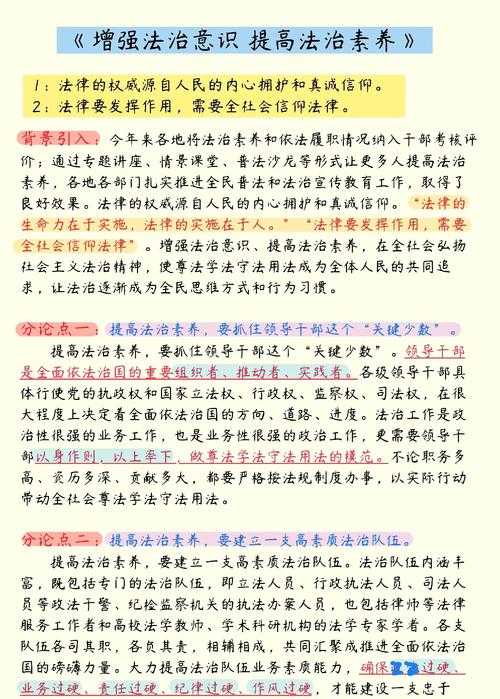 《增强法治意识 提高法治素养》
1：法律的权威源自人民的内心拥护和真诚信仰。
2：法律要发挥作用，需要全社会信仰法律。
背景引入：今年来各地将法治素养和依法履职情况纳入干部考核评
价；通过专题讲座、情景课堂、普法沙龙等形式让更多人提高法治
素养，各地各部门扎实推进全民普法和法治宣传教育工作，取得了
良好效果。法律的权威源自人民的内心拥护和真诚信仰。“法律的
生命力在于实施，法律的实施在于人。”“法律要发挥作用，需要
全社会信仰法律”。增强法治意识、提高法治素养，在全社会弘扬
社会主义法治精神，使尊法学法守法用法成为全体人民的共同追
求，让法治逐渐成为全民思维方式和行为习惯。
分论点一：提高法治素养，要抓住领导干部这个“关键少数”。
提高法治素养，要抓住领导干部这个“关键少数”。领导干部
是全面依法治国的重要组织者、推动者、实践者。各级领导干部具
体行使党的执政权和国家立法权、行政权、监察权、司法权，在很
大程度上决定着全面依法治国的方向、道路、进度。法治工作是政
治性很强的业务工作，也是业务性很强的政治工作，更需要领导干
部以身作则，以上率下，做尊法学法守法用法的模范。不论职务多
高、资历多深、贡献多大，都要严格按法规制度办事，以实际行动
带动全社会尊法学法守法用法。
分论点二：提高法治素养，要建立一支高素质法治队伍。
提高法治素养，要建立一支高素质法治队伍。法治队伍内涵丰
富，既包括专门的法治队伍，即立法人员、行政执法人员、司法人
员等政法干警、纪检监察机关的执法办案人员，也包括律师等法律
服务工作者和高校法学教师、学术科研机构的法学专家学者。各支
队伍各司其职，各负其责，相辅相成，共同汇聚成推进全面依法治
国的磅礴力量。大力提高法治队伍业务素质能力，确保过硬、
业务过硬、责任过硬、纪律过硬、作风过硬，才能建设一支忠于